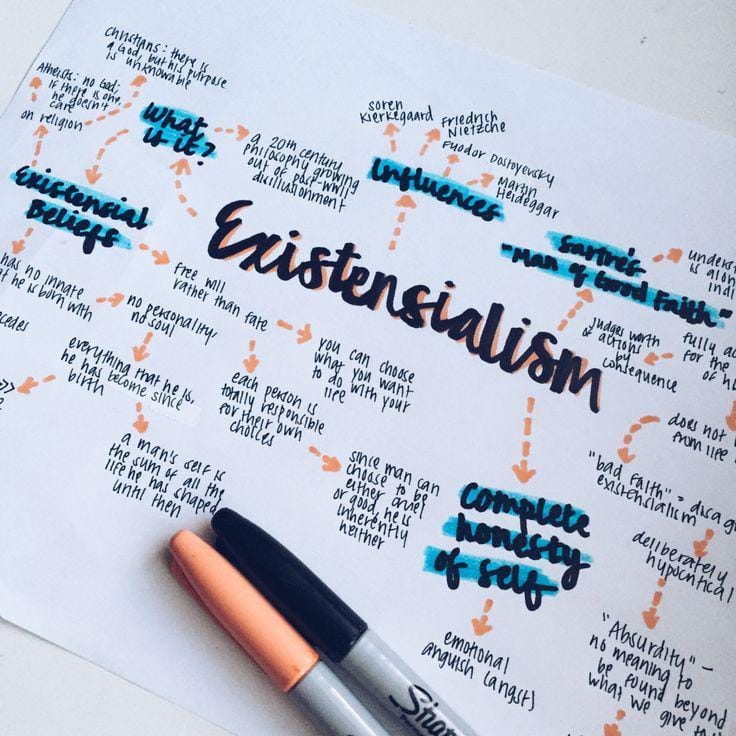 Christians: there is
a God, but his purpose
is unknowable
Atheists: no God;
if there is one,
he doesn't
care
on religion
What
is it?
a 20th century
philosophy growing
out of post-WWII
disillusionment
Existensial
Beliefs
Influences
Soren
Kierkegaard
Friedrich
Nietzche
Fyodor Dostoyevsky
Martin
Heideggar
Existensialism
Sartre's
"Man of Good Faith"
underst
is alon
indi
judges worth
of actions
by
consequence
fully ac
for the
of h
does not
from life
has no innate
at he is born with
cedes
no personality/
no soul
everything that he is,
he has become since
birth
>>
e
a man's self is
the sum of all the
life he has shaped
until then
free will
rather than fate
you can choose
what you want
to do with your
life
each person is
totally responsible
for their own
choices
since man can
choose to be
either cruel
or good, he is
inherently
neither
Complete
honesty
of self
emotional
anguish (angst)
"bad faith" = disag
existensialism
deliberately
hypocritical
"Absurdity" -
no meaning to
be found beyond
what we give to
Sharpie